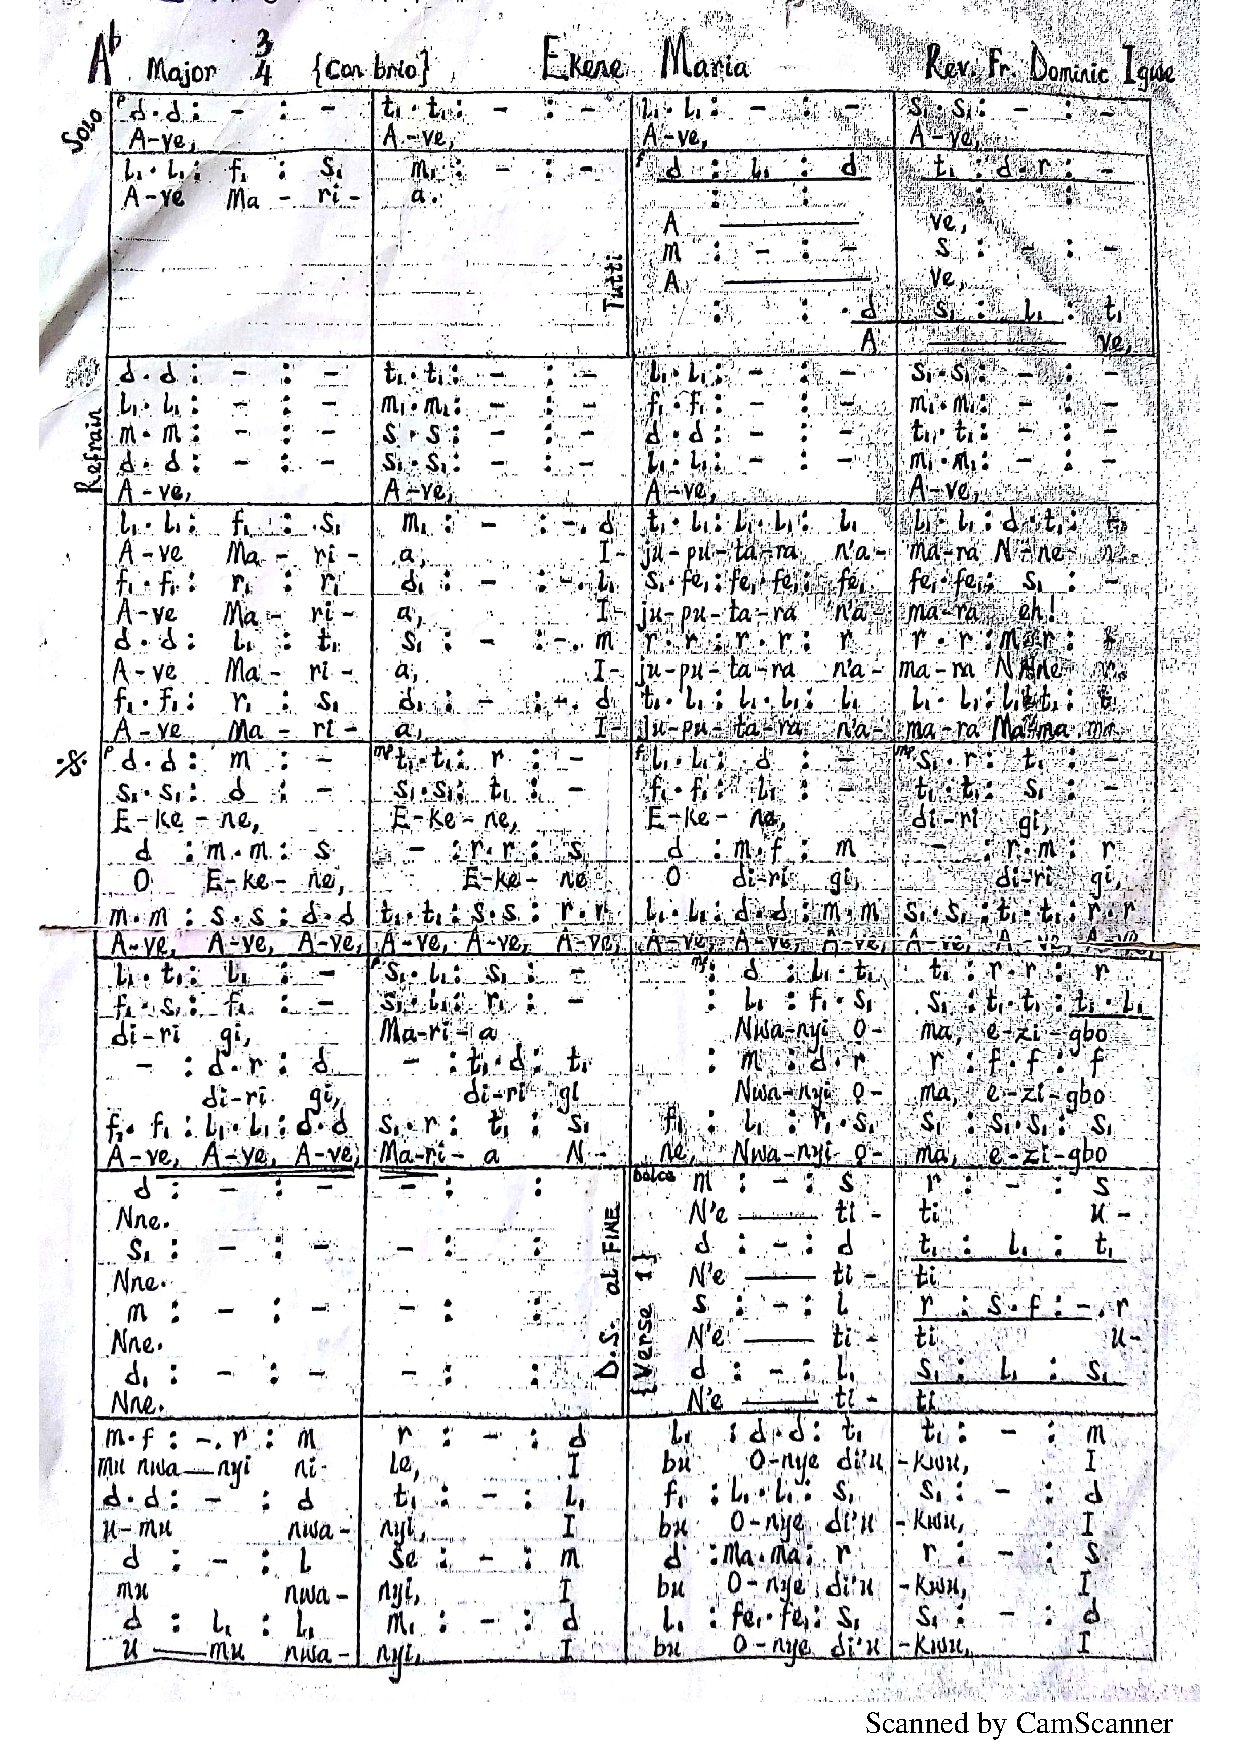 A♭ Major 3/4 {Con brio} Ekene Maria Rev. Fr. Dominic Igwe
Solo
p d.d : - : - | t₁.t₁ : - : - | l₁.l₁ : - : - | s₁.s₁ : - : -
A-ve, | A-ve, | A-ve, | A-ve,
l₁.l₁ : f₁ : s₁ | m₁ : - : - | f d : l₁ : d | t₁ : d.r : -
A-ve Ma - ri - | a. | : : | : :
Tutti
A ve,
m : - : - | s : - : -
A ve,
: : .d | s₁ : l₁ : t₁
A ve,
Refrain
d.d : - : - | t₁.t₁ : - : - | l₁.l₁ : - : - | s₁.s₁ : - : -
l₁.l₁ : - : - | m₁.m₁ : - : - | f₁.f₁ : - : - | m₁.m₁ : - : -
m.m : - : - | s.s : - : - | d.d : - : - | t₁.t₁ : - : -
d.d : - : - | s₁.s₁ : - : - | l₁.l₁ : - : - | m₁.m₁ : - : -
A-ve, | A-ve, | A-ve, | A-ve,
l₁.l₁ : f₁ : .s₁ | m₁ : - : -. d | t₁.l₁ : l₁.l₁ : l₁ | l₁.l₁ : d.t₁ :
A-ve Ma - ri - | a, I- | ju-pu-ta-ra n'a- | ma-ra N-ne
f₁.f₁ : r₁ : r₁ | d₁ : - : -. l₁ | s₁.fe₁ : fe₁.fe₁ : fe₁ | fe₁.fe₁ : s₁ : -
A-ve Ma - ri - | a, I- | ju-pu-ta-ra n'a- | ma-ra eh!
d.d : l₁ : t₁ | s₁ : - : -. m | r.r : r.r : r | r.r :
A-ve Ma - ri - | a, I- | ju-pu-ta-ra n'a- | ma-ra
f₁.f₁ : r₁ : s₁ | d₁ : - : -. d | t₁.l₁ : l₁.l₁ : l₁ | l₁.l₁ :
A-ve Ma - ri - | a, I- | ju-pu-ta-ra n'a- | ma-ra Ma-ma
𝄋 p d.d : m : - | mp t₁.t₁ : r : - | f l₁.l₁ : d : - | mp s₁.r : t₁ : -
s₁.s₁ : d : - | s₁.s₁ : t₁ : - | f₁.f₁ : l₁ : - | t₁.t₁ : s₁ : -
E-ke-ne, | E-ke-ne, | E-ke-ne, | di-ri gi,
d : m.m : s | - : r.r : s | d : m.f : m | - : r.m : r
O E-ke-ne, | E-ke-ne | O di-ri gi, | di-ri gi,
m.m : s.s : d.d | t₁.t₁ : s.s : r.r | l₁.l₁ : d.d : m.m | s₁.s₁ : t₁.t₁ : r.r
A-ve, A-ve, A-ve, | A-ve, A-ve, A-ve, | A-ve, A-ve, A-ve, | A-ve, A-ve, A-ve,
l₁.t₁ : l₁ : - | p s₁.l₁ : s₁ : - | mf : d : l₁.t₁ | t₁ : r.r : r
f₁.s₁ : f₁ : - | s₁.l₁ : r₁ : - | : l₁ : f₁.s₁ | s₁ : t₁.t₁ : t₁.l₁
di-ri gi, | Ma-ri-a | Nwa-nyi o- | ma, e-zi-gbo
- : d.r : d | - : t₁.d : t₁ | : m : d.r | r : f.f : f
di-ri gi, | di-ri gi | Nwa-nyi o- | ma, e-zi-gbo
f₁.f₁ : l₁.l₁ : d.d | s₁.r : t₁ : s₁ | f₁ : l₁ : r₁.s₁ | s₁ : s₁.s₁ : s₁
A-ve, A-ve, A-ve, | Ma-ri-a N- | ne, Nwa-nyi o- | ma, e-zi-gbo
d : - : - | - : : | Dolce m : - : s | r : - : s
Nne. | N'e ti - | ti u -
s₁ : - : - | - : : | d : - : d | t₁ : l₁ : t₁
Nne. | N'e ti - | ti
m : - : - | - : : | s : - : l | r : s.f : -.r
Nne. | N'e ti - | ti u-
d₁ : - : - | - : : | d : - : l₁ | s₁ : l₁ : s₁
Nne. | N'e ti - | ti
D.S. al FINE
{Verse 1}
m.f : -.r : m | r : - : d | l₁ : d.d : t₁ | t₁ : - : m
mu nwa nyi ni- | le, I | bu O-nye di'u | -kwu, I
d.d : - : d | t₁ : - : l₁ | f₁ : l₁.l₁ : s₁ | s₁ : - : d
u-mu nwa- | nyi, I | bu O-nye di'u | -kwu, I
d : - : l | se : - : m | d : ma.ma : r | r : - : s
mu nwa- | nyi, I | bu O-nye di'u | -kwu, I
d : l₁ : l₁ | m₁ : - : d | l₁ : fe₁.fe₁ : s₁ | s₁ : - : d
u mu nwa- | nyi, I | bu O-nye di'u | -kwu, I
Scanned by CamScanner